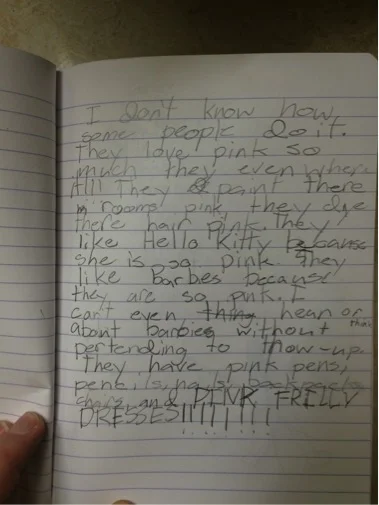 I don't know how
some people do it.
They love pink so
much they even wher
it!! They paint there
rooms pink, they dye
there hair pink. They
like Hello Kitty because
she is so pink. They
like barbes because
they are so pink. I
can't even hear or
about barbies without
pertending to thow-up.
They have pink pens,
pencils,
chairs, and PINK FRILLY
DRESSES!!!!!!!!!